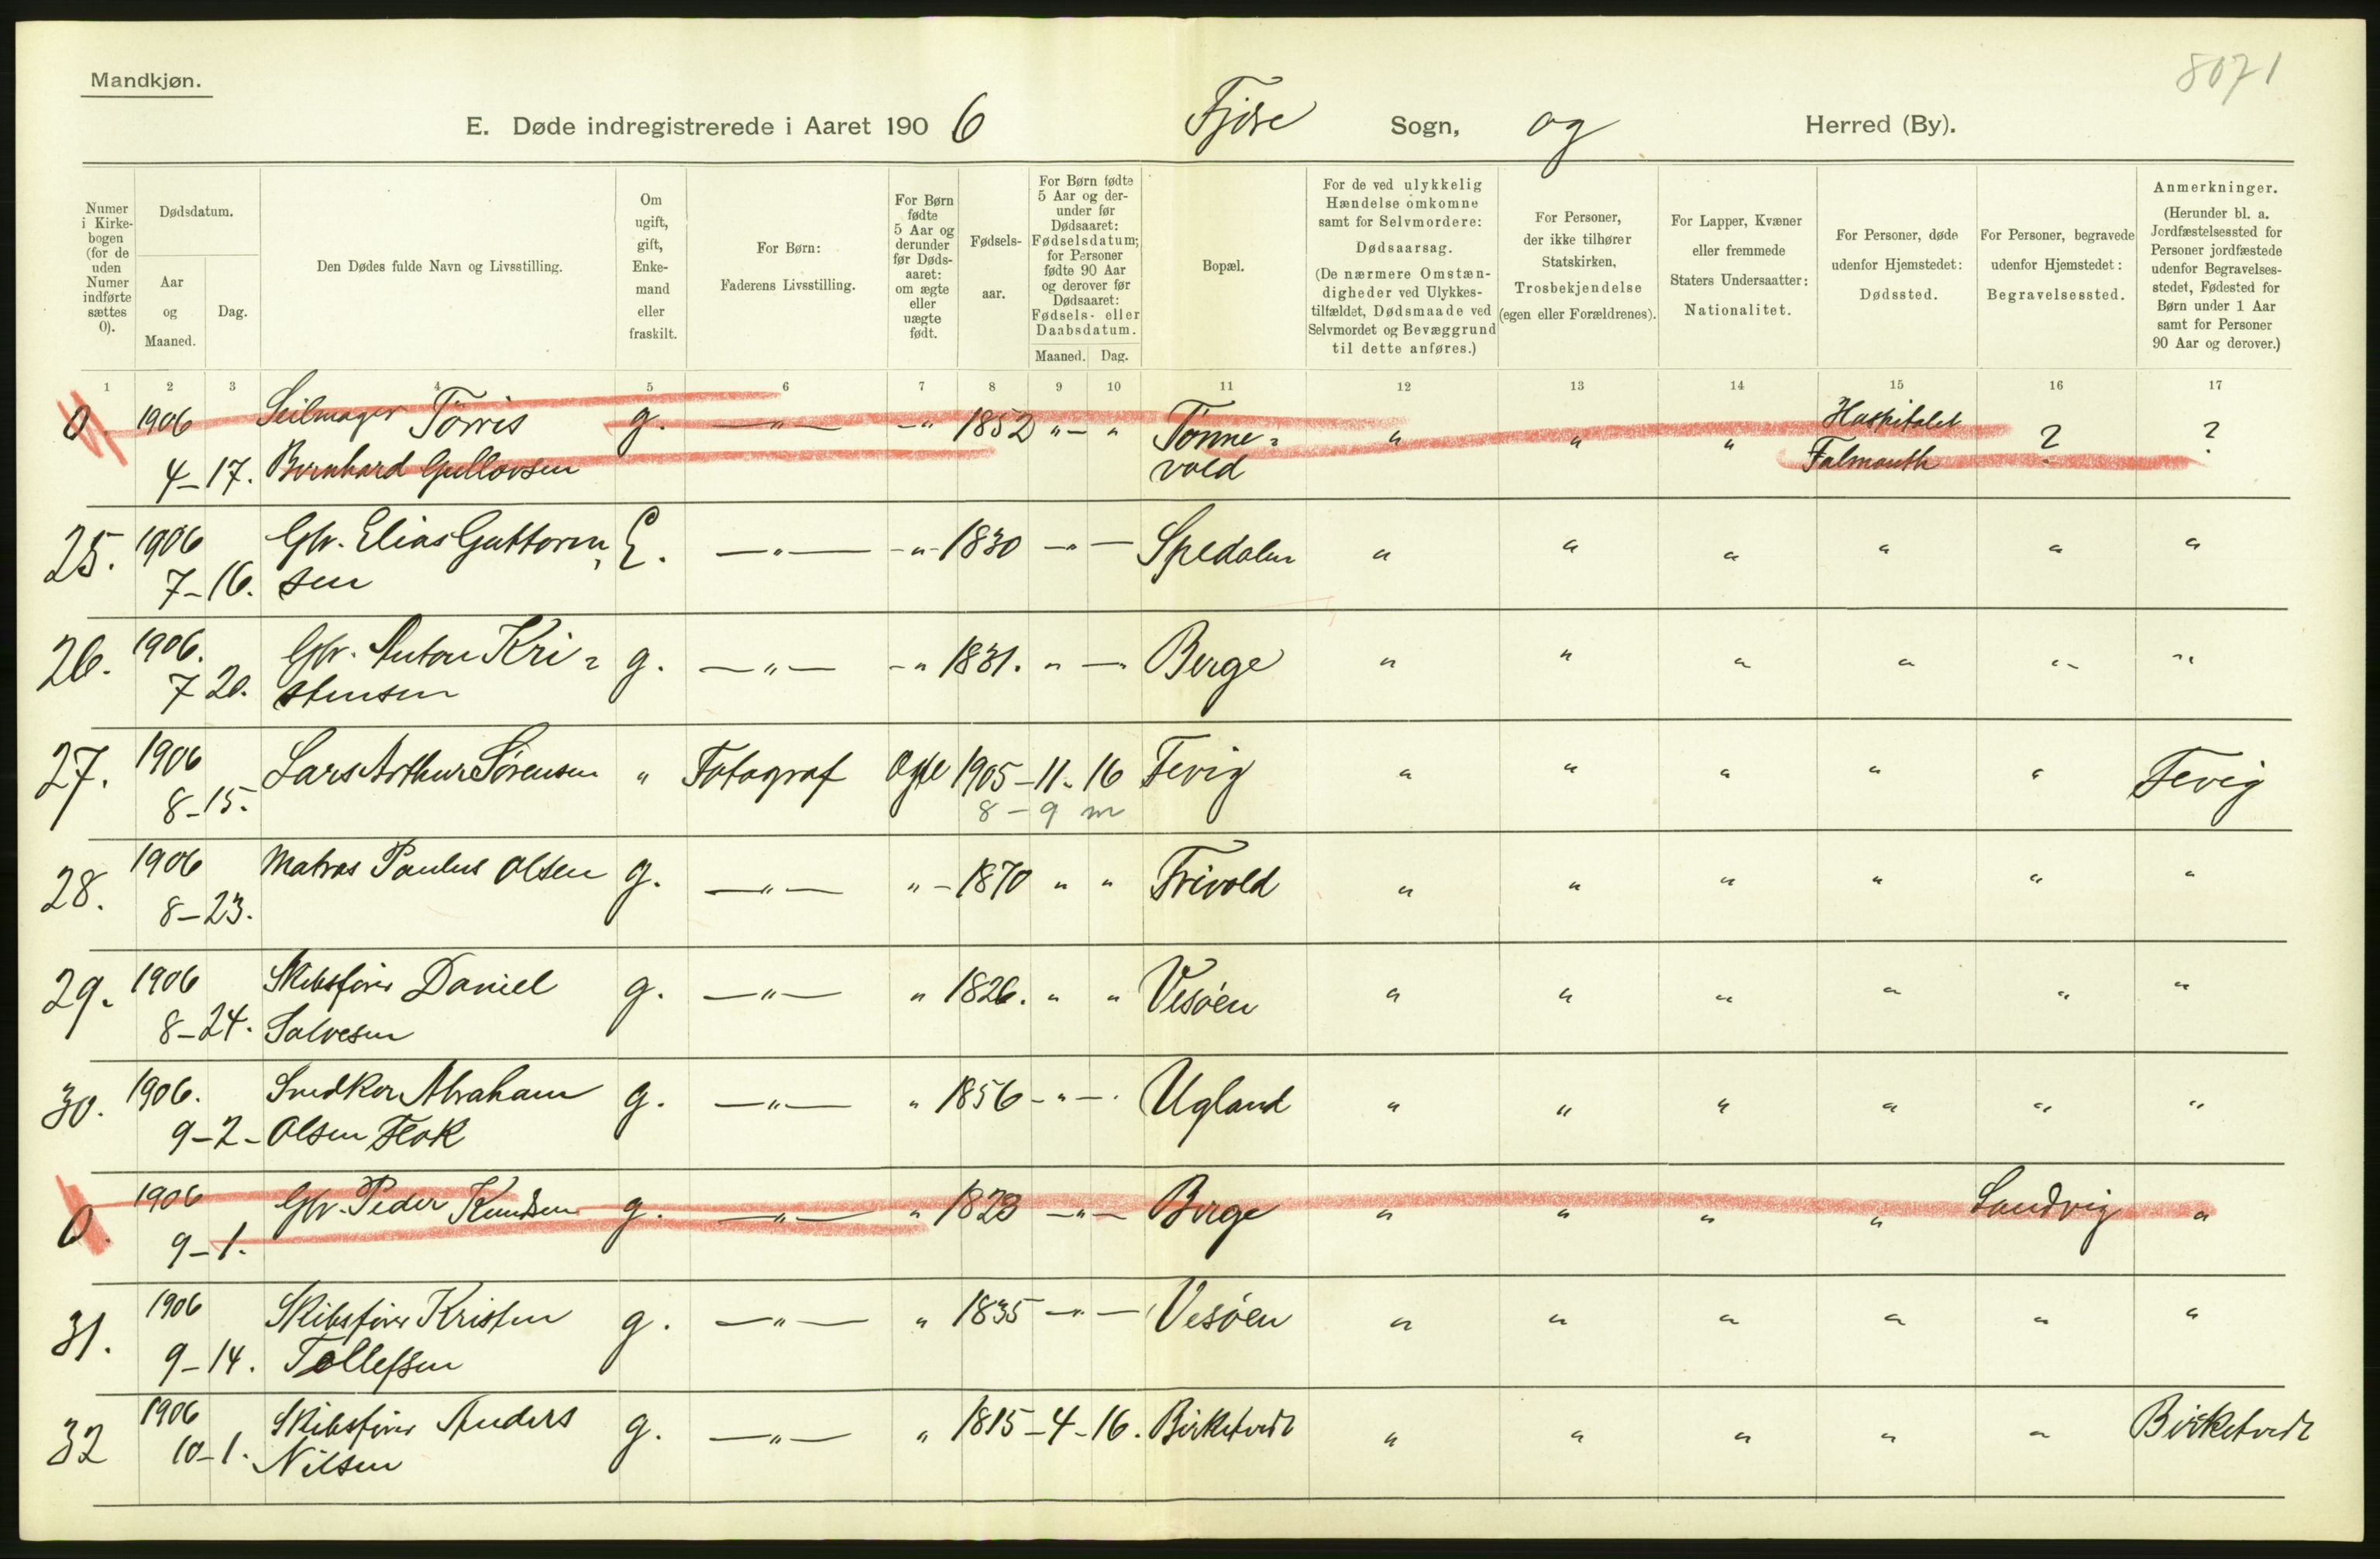 8071
Mandkjøn.
E. Døde indregistrerede i Aaret 1906 Fjære Sogn, og Herred (By).
Numer i Kirke-bogen (for de uden Numer indførte sættes 0).
Dødsdatum.
Aar og Maaned.
Dag.
Den Dødes fulde Navn og Livsstilling.
Om ugift, gift, Enke-mand eller fraskilt.
For Børn: Faderens Livsstilling.
For Børn fødte 5 Aar og derunder før Døds-aaret: om ægte eller uægte født.
Fødsels-aar.
For Børn fødte 5 Aar og der-under før Dødsaaret: Fødselsdatum; for Personer fødte 90 Aar og derover før Dødsaaret: Fødsels- eller Daabsdatum.
Maaned. Dag.
Bopæl.
For de ved ulykkelig Hændelse omkomne samt for Selvmordere: Dødsaarsag. (De nærmere Omstæn-digheder ved Ulykkes-tilfældet, Dødsmaade ved Selvmordet og Bevæggrund til dette anføres.)
For Personer, der ikke tilhører Statskirken, Trosbekjendelse (egen eller Forældrenes).
For Lapper, Kvæner eller fremmede Staters Undersaatter: Nationalitet.
For Personer, døde udenfor Hjemstedet: Dødssted.
For Personer, begravede udenfor Hjemstedet: Begravelsessted.
Anmerkninger. (Herunder bl. a. Jordfæstelsessted for Personer jordfæstede udenfor Begravelses-stedet, Fødested for Børn under 1 Aar samt for Personer 90 Aar og derover.)
1 2 3 4 5 6 7 8 9 10 11 12 13 14 15 16 17
0. 1906 Seilmager Tørris g. —"— -" 1852 "-" Tønne= " " " Hospitalet ? ?
4-17. Bernhard Gulløvsen vold Falmouth
25. 1906 Gbr. Elias Guttorm E. —"— -"- 1830 -"- Spedalen " " " " " "
7-16. sen
26. 1906. Gbr. Anton Kri= g. —"— -" 1831. " —" Berge " " " " " "
7 20. stensen
27. 1906 Lars Arthur Sørensen " Fotograf Ægte 1905-11-16 Fevig " " " " " Fevig
8-15. 8-9 m
28. 1906 Matros Paulus Olsen g. —"— "- 1870 " " Frivold " " " " " "
8-23.
29. 1906 Skibsfører Daniel g. —"— " 1826. " " Vesøen " " " " " "
8-24. Salvesen
30. 1906. Snedker Abraham g. —"— " 1856 -"- Ugland " " " " " "
9-2- Olsen Flak
0. 1906 Gbr. Peder Knudsen g. —"— " 1823 -"- Berge " " " " Landvig "
9-1.
31. 1906 Skibsfører Kristen g. —"— " 1835 -"- Vesøen " " " " " "
9-14. Tellefsen
32 1906 Skibsfører Anders g. —"— " 1815-4-16. Birketvedt " " " " " Birketvedt
10-1. Nilsen